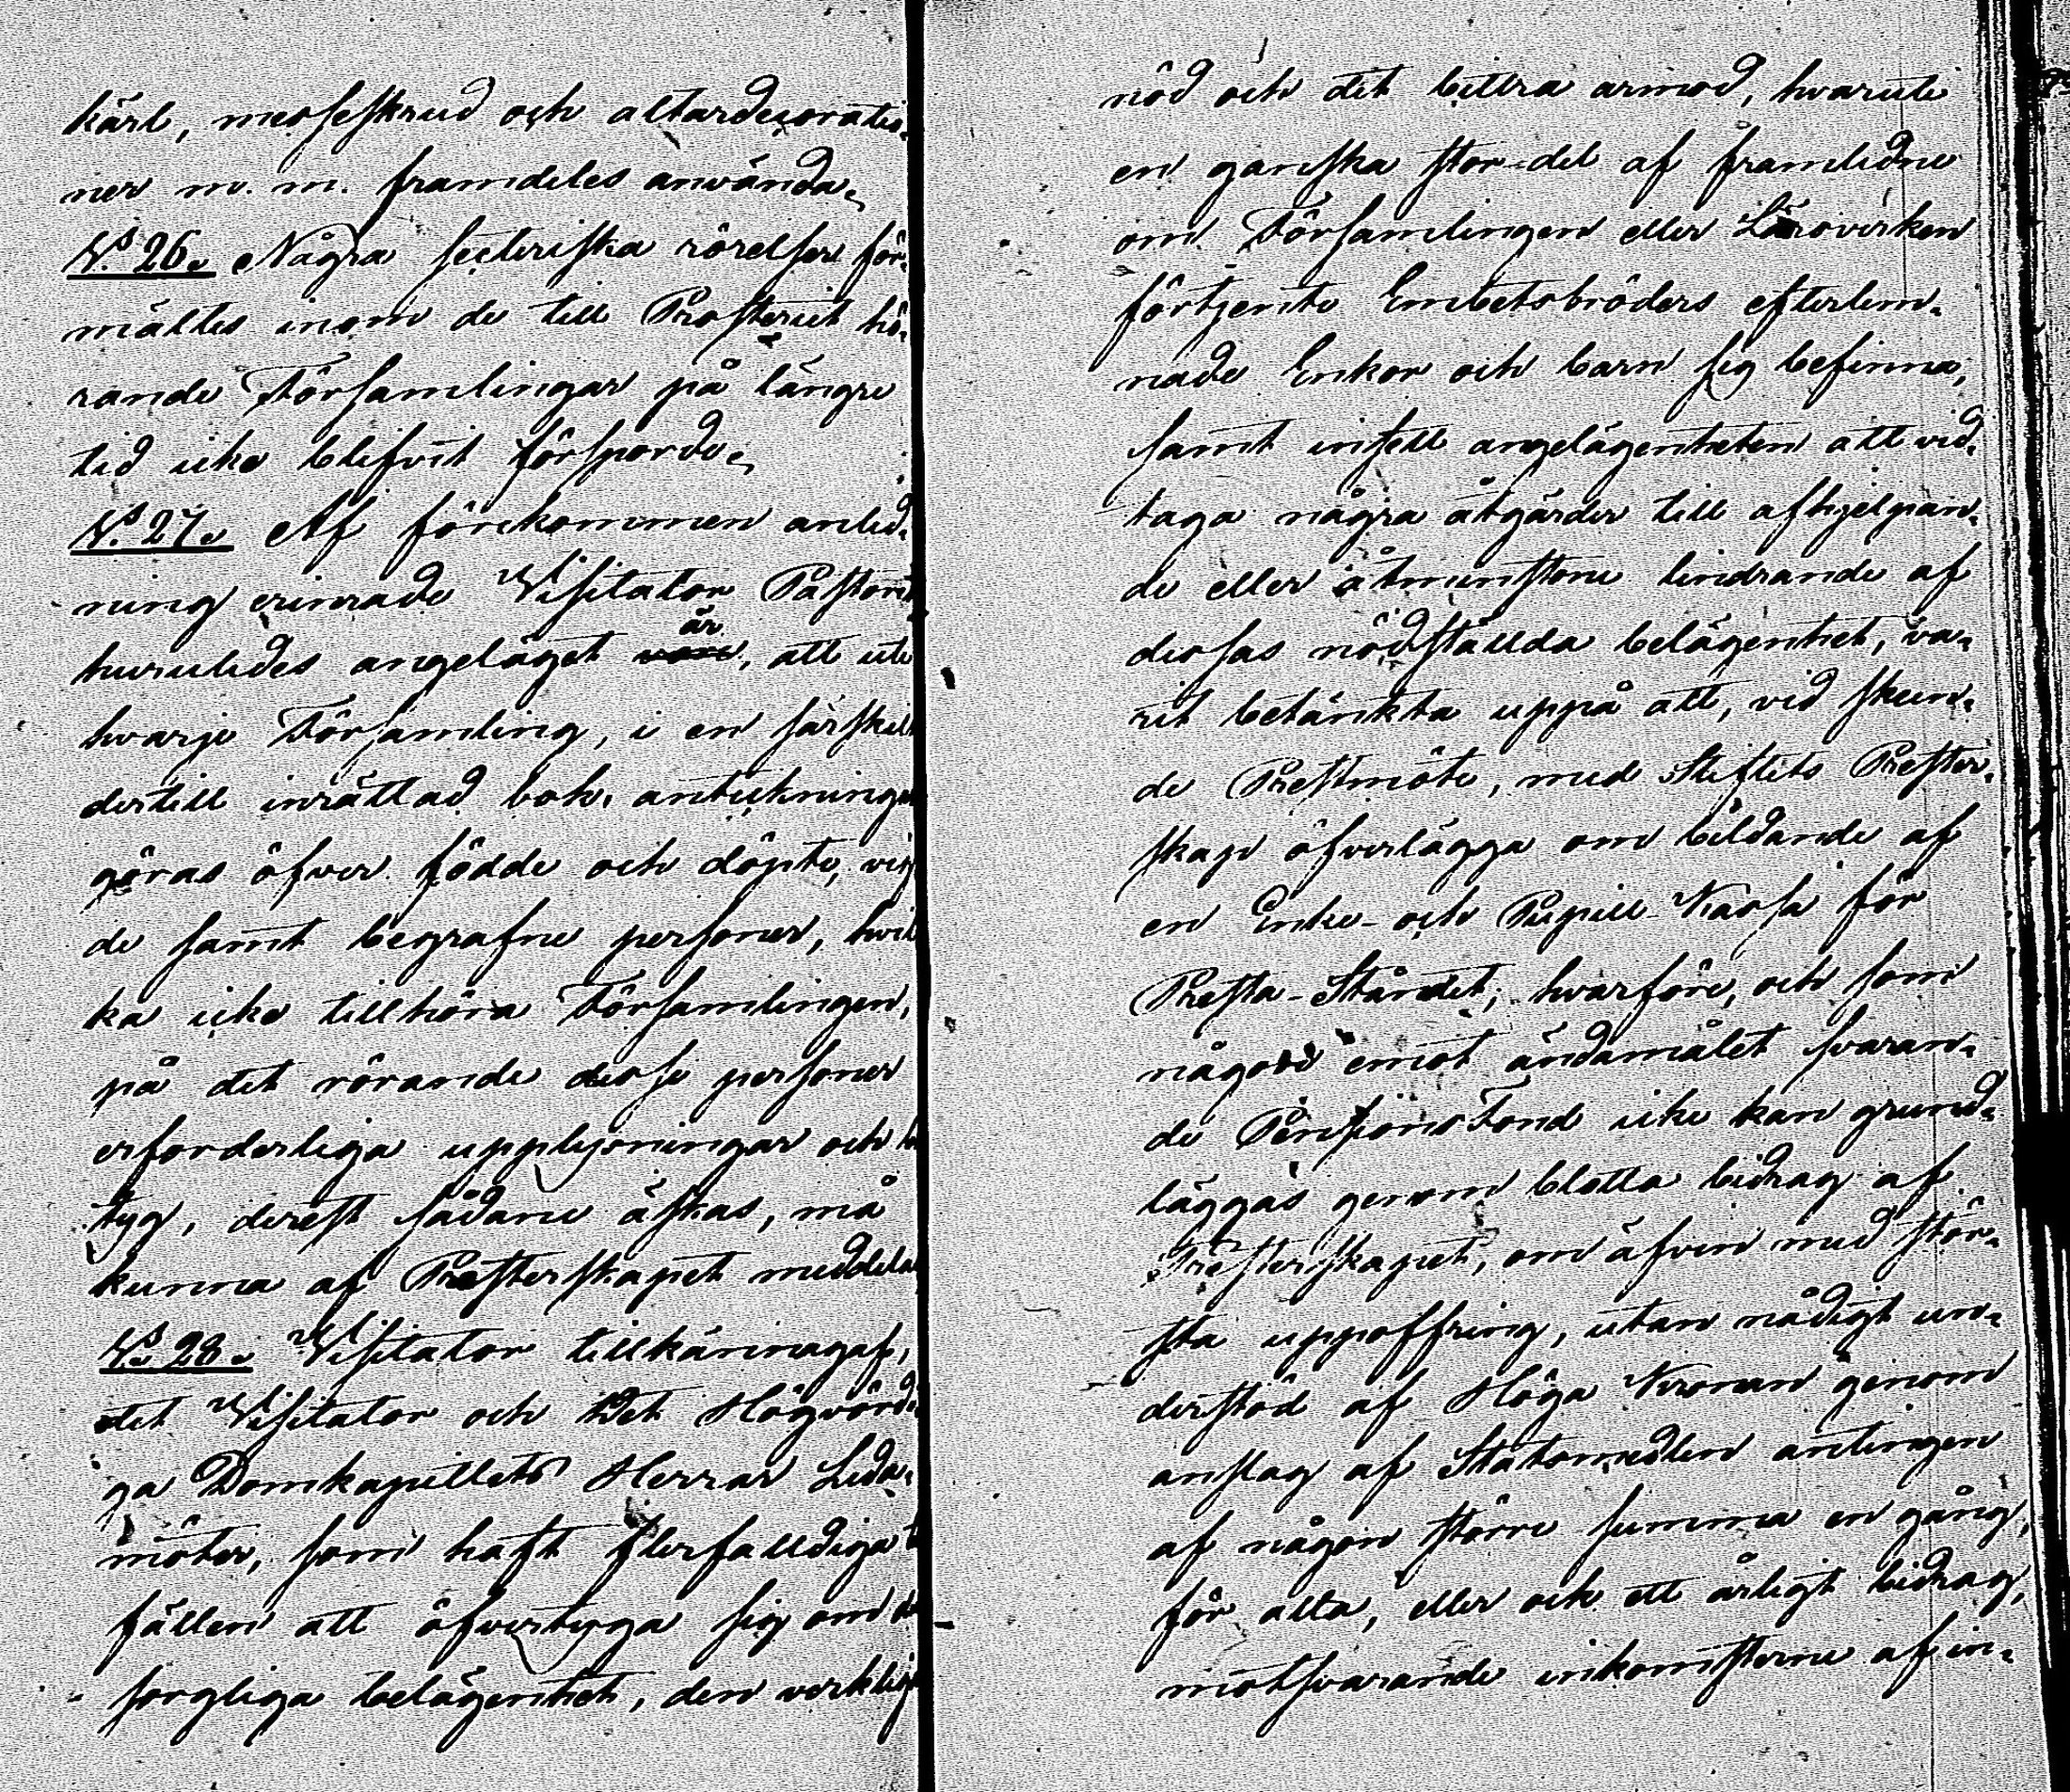 kärl, messeskrud och altardecoratio-
ner m. m. framdeles använda.
N:o 26. Några secteriska rörelser för-
mältes inom de till Prosteriet hö-
rande Församlingar på längre
tid icke blifvit försporde.
N:o 27. Af förekommen anled-
ning erinrade Visitator Pastor
huruledes angeläget är, att uti
hvarje Församling, i en särskilt
dertill inrättad bok, anteckningar
göras öfver födde och döpte, vig
de samt begrafne personer, hvil
ka icke tillhöra Församlingen,
på det rörande desse personer
erforderliga upplysningar och be
tyg, derest sådane äskas, må
kunna af Presterskapet meddelas
N:o 28. Visitator tillkännagaf,
det Visitator och Det Högvördi
ga Domkapitlets Herrar Leda-
möter, som haft flerfalldiga til
fällen att öfvertyga sig om de
sorgliga belägenhet, den verklig
nöd och det bittra armod, hvaruti
en ganska stor del af framlidne
om Församlingen eller Läroverken
förtjente Embetsbröders efterlem-
nade Enkor och barn sig befinna,
samt insett angelägenheten att vid-
taga några åtgärder till afhjelpan-
de eller åtminstone lindrande af
dessas nödställda belägenhet, va-
rit betänkta uppå att, vid skeen-
de Prestmöte, med Stiftets Prester-
skap öfverlägga om bildande af
en Enke- och Pupill-Kassa för
Presta-Ståndet; hvarföre, och som
någon emot ändamålet svaran-
de Pensions Fond icke kan grund-
läggas genom blotta bidrag af
Presterskapet, om äfven med stör-
sta uppoffring, utan nådigt un-
derstöd af Höga Kronan genom
anslag af Statsmedlen antingen
af någon större summa en gång,
för alla, eller och ett årligt bidrag,
motsvarande inkomsterne af in-